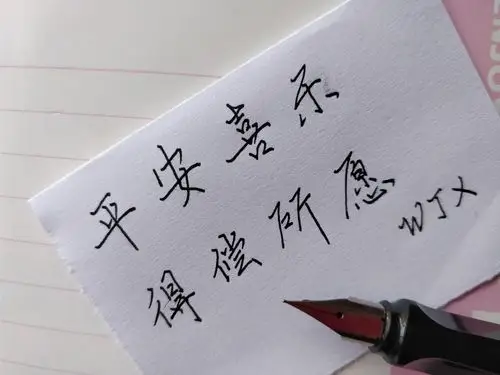 平安喜乐
得偿所愿
WJX